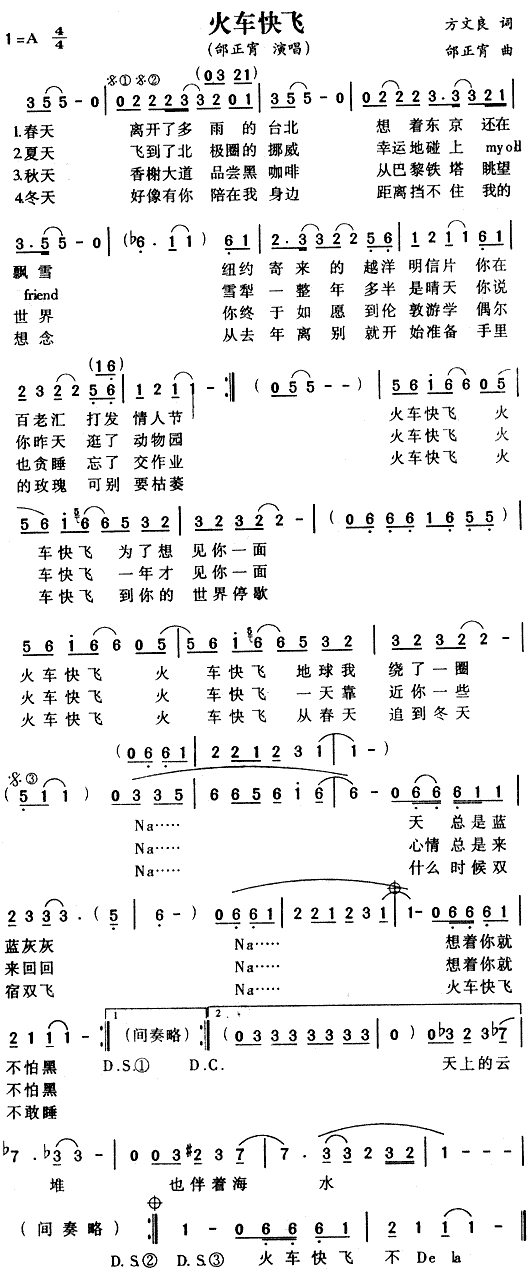 火车快飞
1=A 4/4
(邰正宵 演唱)
方文良 词
邰正宵 曲
𝄋① 𝄋② (03 21)
355-0 | 0222233201 | 355-0 | 02222·33321 |
1.春天 离开了多 雨 的 台北 想 着东 京 还在
2.夏天 飞到了北 极圈的 挪威 幸运地碰 上 my old
3.秋天 香榭大道 品尝黑 咖啡 从巴黎铁 塔 眺望
4.冬天 好像有你 陪在我 身边 距离挡不 住 我的
3·555-0 | (♭6·11) 61 | 2·332256 | 121161 |
飘 雪 纽约 寄 来 的 越洋 明信片 你在
friend 雪犁 一 整 年 多半 是晴天 你说
世 界 你终 于 如 愿 到伦 敦游学 偶尔
想 念 从去 年 离 别 就开 始准备 手里
(16)
232256 | 1211- :‖ (055--) | 56i6605 |
百老汇 打发 情人节 火车快飞 火
你昨天 逛了 动物园 火车快飞 火
也贪睡 忘了 交作业 火车快飞 火
的玫瑰 可别 要枯萎
56i66532 | 32322- | (06661655) |
车快飞 为了想 见你一面
车快飞 一年才 见你一面
车快飞 到你的 世界停歇
56i6605 | 56i66532 | 32322-) |
火车快飞 火 车快飞 地球我 绕了一圈
火车快飞 火 车快飞 一天靠 近你一些
火车快飞 火 车快飞 从春天 追到冬天
(0661 | 221231 | 1-)
𝄋③
(511) | 0335 | 6656i6 | 6-066611 |
Na····· 天 总是蓝
Na····· 心情 总是来
Na····· 什么 时候双
2333·(5 | 6-) 0661 | 221231 | 1-06661 |
蓝灰灰 Na····· 想着你就
来回回 Na····· 想着你就
宿双飞 Na····· 火车快飞
2111- :‖ (间奏略) :‖ (03333333 | 0) 0♭323♭7 |
1 2.
不怕黑 D.S.① D.C. 天上的云
不怕黑
不敢睡
♭7·♭33- | 003#237 | 7·33232 | 1--- |
堆 也伴着海 水
(间奏略) :‖ 1-0666 | 2111-‖
D.S.② D.S.③ 火车快飞 不 De la